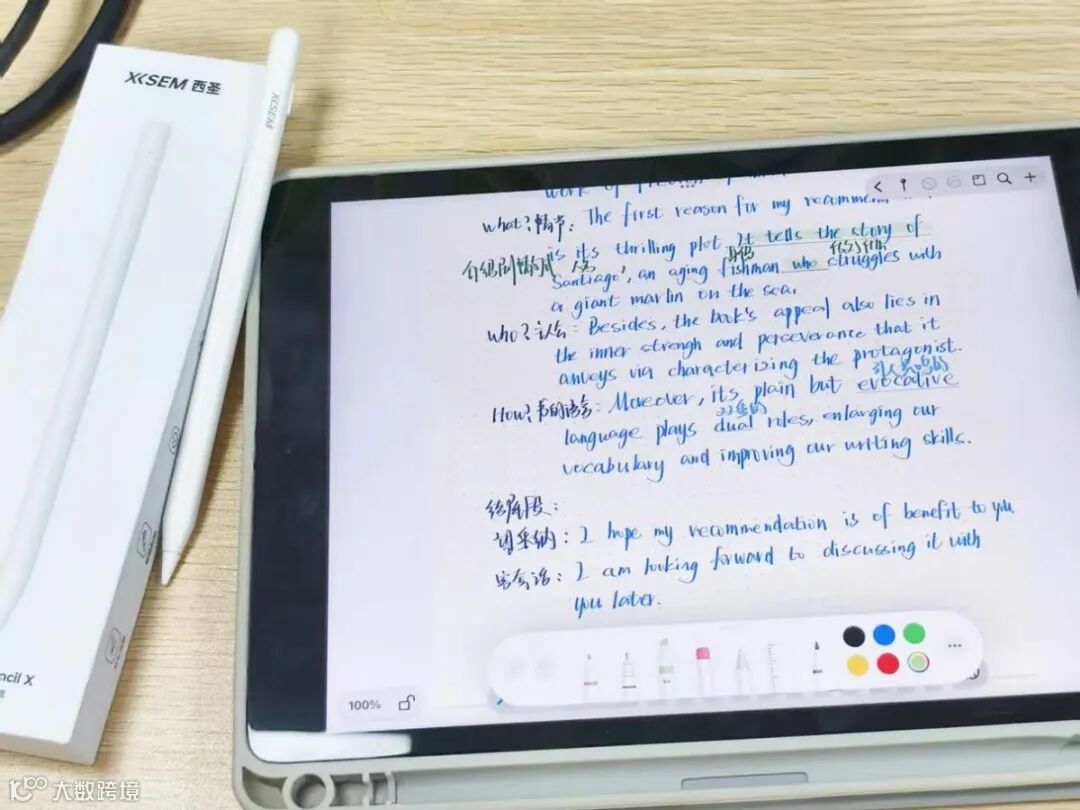 XISEM 西圣
XISEM
What?情节: The first reason for my recommen
is its thrilling plot. It tells the story of
介绍剧情的 人名 身份
Santiago', an aging fishman who struggles with
a giant marlin on the sea.
Who?主人公: Besides, the book's appeal also lies in
the inner strengh and perseverance that it
conveys via characterizing the protagonist.
引人共鸣的
How?书的语言: Moreover, its plain but evocative
双重的
language plays dual roles, enlarging our
vocabulary and improving our writing skills.
结尾段:
望采纳: I hope my recommendation is of benefit to you
客套话: I am looking forward to discussing it with
you later.
100%
ncil X
大数跨境